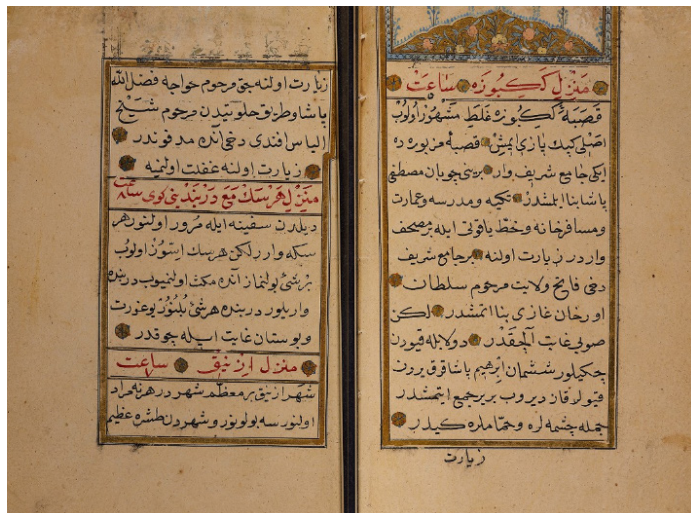 منزل ككبوزه ساعت
قصبۀ ككبوزه غلط مشهور اولوب
اصلى كيك يازى ايمش قصبۀ مزبوره ده
ايكى جامع شريف وار برينى چوبان مصطفى
پاشا بنا ايلمشدر تكيه و مدرسه و عمارت
و مسافرخانه و خط ياقوتى ايله بر مصحف
واردر زيارت اولنه بر جامع شريف
دخى فاتح ولايت مرحوم سلطان
اورخان غازى بنا ايتمشدر لكن
صويى غايت آلچقدر دولابله قيودن
چكيلور ششمان ابرهيم پاشا قوپرون
قيولر قازديروب بر يره جمع ايتمشدر
جمله چشمه لره و حماملره كيدر
زيارت
زيارت اولنه جق مرحوم خواجه فضل الله
پاشا و طريق خلوتيدن مرحوم شيخ
الياس افندى دخى آنده مدفوندر
زيارت اولنه غفلت اولنميه
منزل هرسك مع دربند ينى كوى ساعت ٨
ديلدن سفينه ايله مرور اولنور هر
سكه وارر لكن هرسك اسّوز اولوب
بر شئ بولنماز آنده مكث اولنميوب دربنده
واريلور دربنده هر شئ بلنور يوغورت
و بوستان غايت ايله چوقدر
منزل ازنيق ساعت
شهر ازنيق بر معظم شهردر هر نه مراد
اولنورسه بولونور و شهردن طشره عظيم